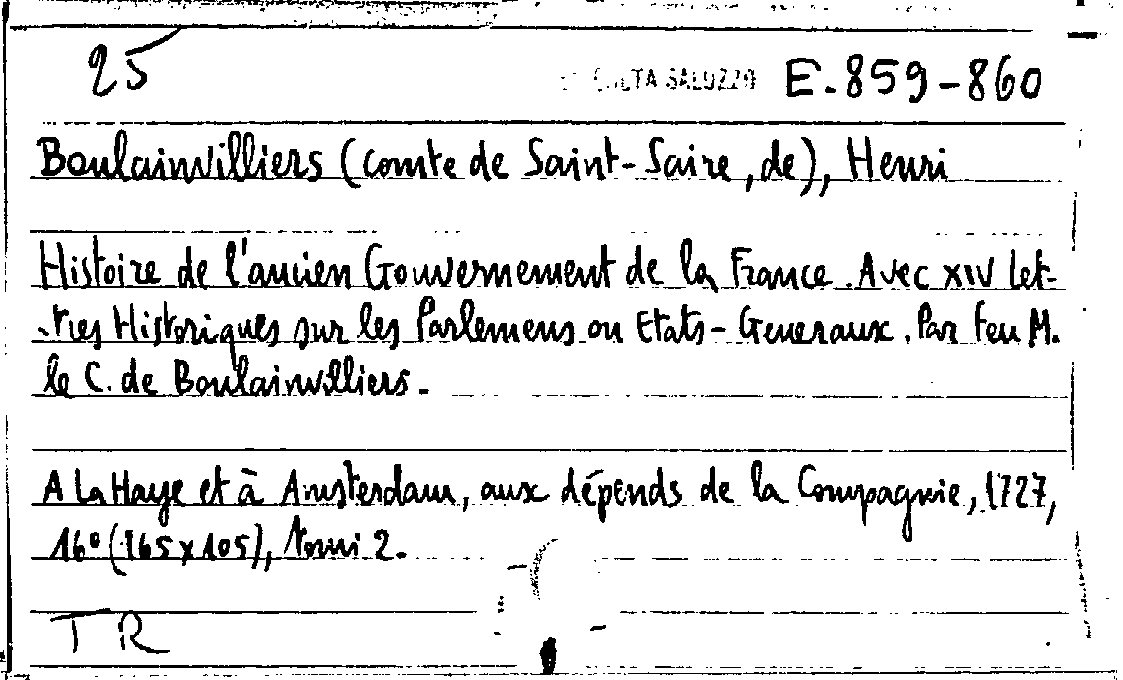 25 SALUZZO E.859-860
Boulainvilliers (comte de Saint-Saire, de), Henri
Histoire de l'ancien Gouvernement de la France. Avec XIV let-
tres Historiques sur les Parlemens ou Etats-Generaux. Par feu M.
le C. de Boulainvilliers.
A La Haye et à Amsterdam, aux dépends de la Compagnie, 1727,
16° (165x105), tomi 2.
TR